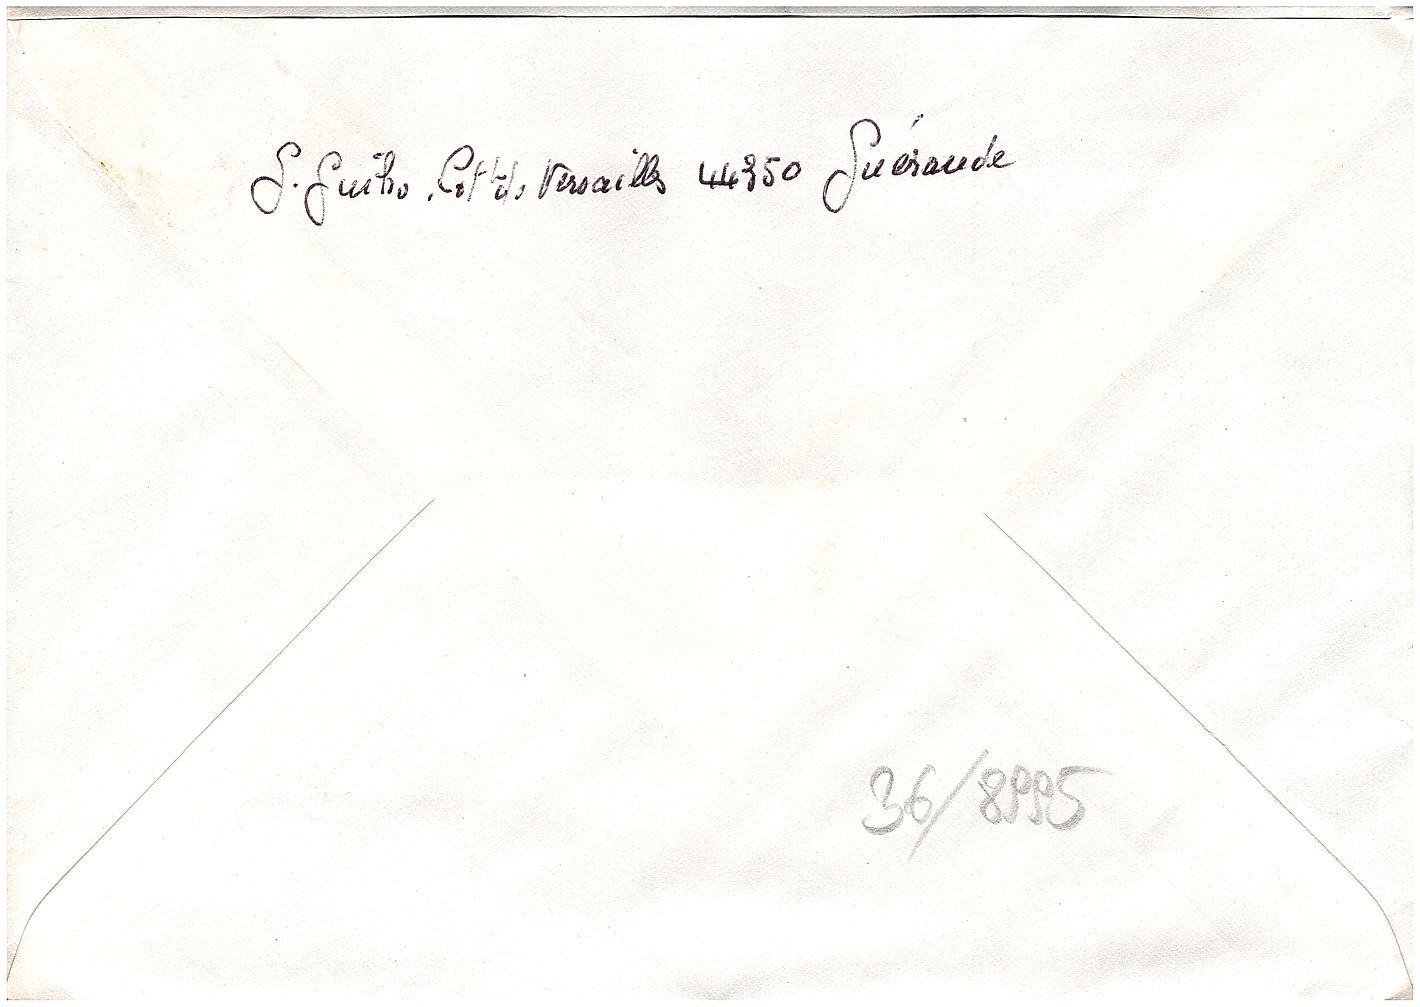 G. Guiho, Versailles 44350 Guérande
36/8995